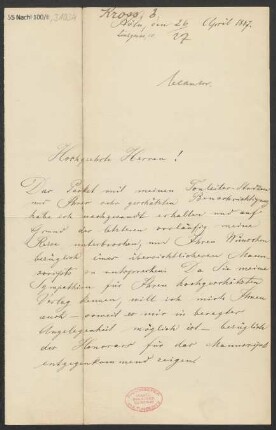 55 Nachl 100/B
Kross, E
Köln, den 26 April 1897.
27
Hochgeehrte Herren!
Das Packet mit meinen Tonleiter-Studien
mit Ihrer sehr geschätzten Benachrichtigung
habe ich nachgesandt erhalten und auf
Grund der letzteren vorläufig meine
Reise unterbrochen, um Ihren Wünschen
bezüglich einer übersichtlicheren Manu-
scripts zu entsprechen. Da Sie meine
Sympathien für Ihren hochgeschätzten
Verlag kennen, will ich mich Ihnen
auch – soweit es mir in besagter
Angelegenheit möglich ist – bezüglich
des Honorars für das Manuscript
entgegenkommend zeigen.